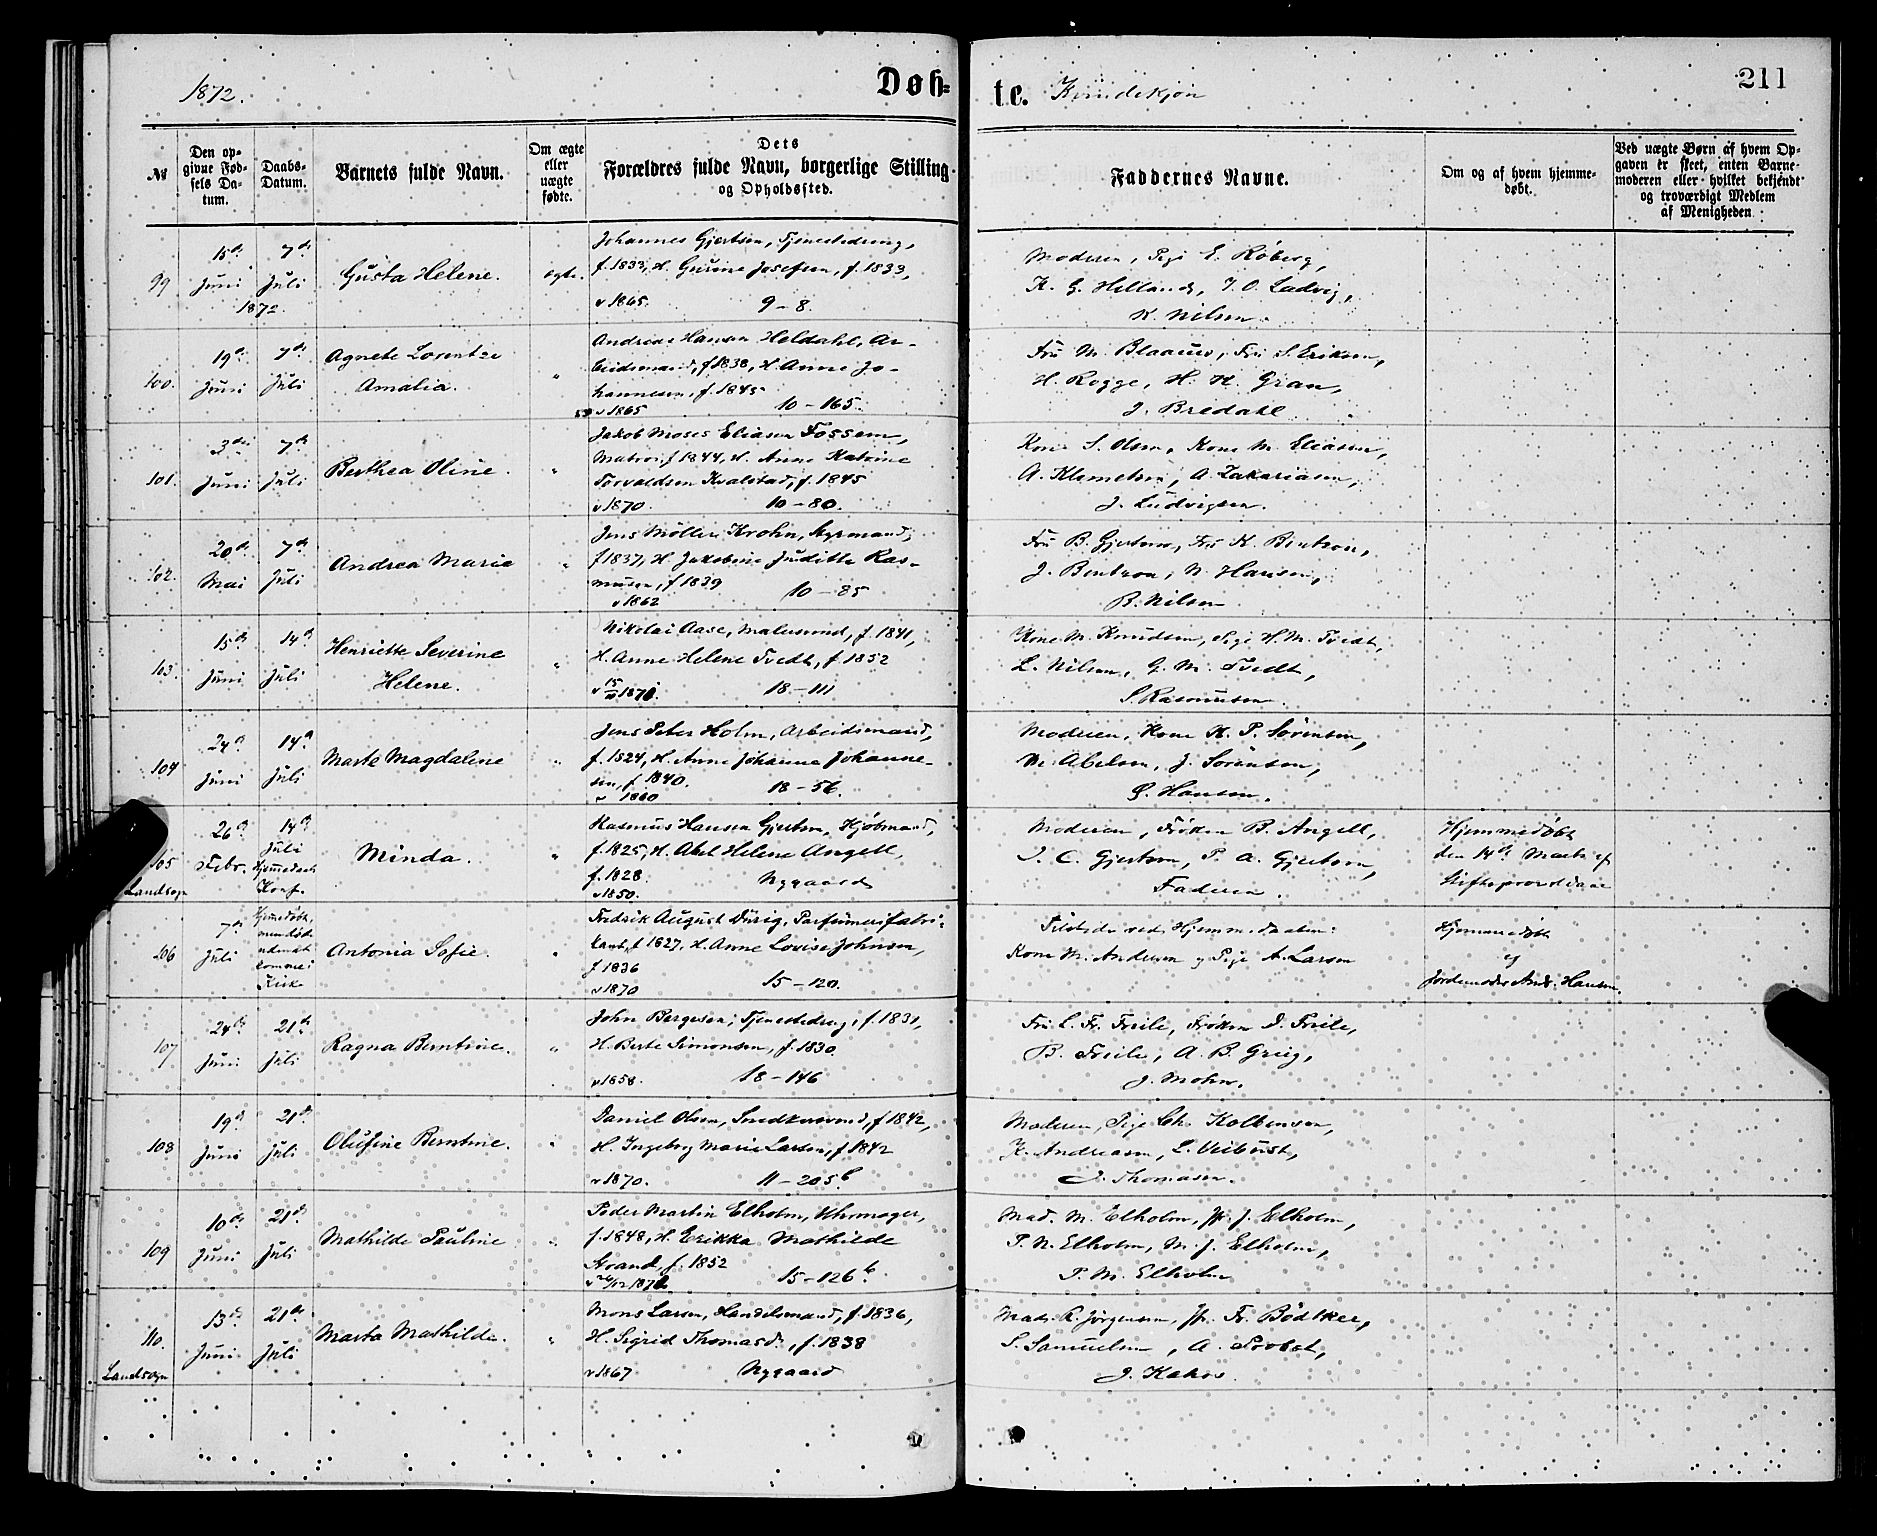 1872.
Døb=
te.
Kvindekjøn
211
№
Den op=
givne Fød=
sels Da=
tum.
Daabs=
Datum.
Barnets fulde Navn.
Om ægte
eller
uægte
fødte.
Dets
Forældres fulde Navn, borgerlige Stilling
og Opholdssted.
Faddernes Navne.
Om og af hvem hjemme=
døbt.
Ved uægte Børn af hvem Op=
gaven er skeet, enten Barne=
moderen eller hvilket bekjendt
og troværdigt Medlem
af Menigheden.
99
15de Juni
7de Juli
1872.
Gusta Helene.
ægte.
Johannes Gjertsen, Tjenestedreng,
f. 1833, H. Gurine Josefsen, f. 1833,
v 1865. 9-8.
Moderen, Pige E. Röberg,
K. G. Helland, J. O. Ladvig,
K. Nilsen.
100.
19de Juni
7de Juli
Agnete Lorentze
Amalia.
"
Andreas Hansen Heldahl, Ar-
beidsmand, f 1838, H. Anne Jo-
hannesen, f. 1845
v 1865 10-165.
Fru M. Blaauw, Fru S. Eriksen,
H. Rogge, H. H. Gran,
J. Bredahl
101.
3die Juni
7de Juli
Berthea Oline.
"
Jakob Moses Eliasen Fossem,
Matros, f 1844, H. Anne Katrine
Torvaldsen Kvalstad, f. 1845
v 1870. 10-80.
Kone S. Olsen, Kone M. Eliasen,
A. Klemetsen, A. Zakariasen,
J. Ludvigsen.
102.
20de Mai
7de Juli
Andrea Marie
"
Jens Möller Krohn, Styrmand,
f 1837, H. Jakobine Juditte Ras-
musen, f 1839
v 1862 10-85
Fru B. Gjertsen, Fru K. Bentzon,
J. Bentzon, N. Hansen,
B. Nilsen
103.
15de Juni
14de Juli
Henriette Severine
Helene.
"
Nikolai Aase, Malersvend, f. 1841,
H. Anne Helene Tvedt, f. 1852
18-111
Kone M. Knudsen, Pige H. M. Tvedt,
L. Nilsen, G. M. Tvedt,
S. Rasmusen.
104
24de Juni
14de Juli
Marte Magdalene
"
Jens Peter Holm, Arbeidsmand,
f. 1824, H. Anne Johanne Johanne-
sen, f 1840.
v 1860 18-56.
Moderen, Kone K. P. Sörensen,
M. Abelsen, J. Sörensen,
S. Hansen.
105
Landsogn
26de Febr.
14de Juli
Hjemmedaab
Konf.
Minda.
"
Rasmus Hansen Gjertsen, Kjöbmand,
f. 1825, H. Abel Helene Angell,
f. 1828. Nygaard
v 1850.
Moderen, Fröken B. Angell,
J. C. Gjertsen, P. A. Gjertsen,
Faderen.
Hjemmedöbt
den 14de Marts af
Stiftsprovst Daae
106
7de Juli
Hjemedöbt,
men död
uden at
komme i
Kirke
Antonia Sofie.
"
Fredrik August Dürig, Parfumerifabri-
kant, f 1827, H. Anne Lovise Johnsen,
f 1836
v 1870 15-120.
Tilstede ved Hjemmedaaben:
Kone M. Andersen og Pige A. Larsen
Hjemmedöbt
af
Jordemoder Andr. Hansen.
107
24de Juni
21de Juli
Ragna Berntine.
"
John Børgesen, Tjenestedreng, f 1831,
H. Berte Simonsen, f. 1830.
v 1858. 18-146
Fru L. Fr. Friele, Fröken D. Friele,
B. Friele, A. B. Grieg,
J. Mohn.
108
19de Juni
21de Juli
Olufine Berntine.
"
Daniel Olsen, Snedkersvend, f 1842,
H. Ingeborg Marie Larsen, f 1842
v 1870. 11-205b
Moderen, Pige Chr. Kolbensen,
K. Andreasen, L. Veibust,
J. Thomasen.
109
10de Juni
21de Juli
Mathilde Pauline
"
Peder Martin Elholm, Uhrmager,
f. 1848, H. Erikka Mathilde
Strand, f. 1852
15-126b.
Mad. M. Elholm, Jfr. J. Elholm,
P. N. Elholm, M. J. Elholm,
P. M. Elholm
110.
Landsogn
13de Juni
21de Juli
Marta Mathilde.
"
Mons Larsen, Handelsmand, f. 1836,
H. Sigrid Thomasdr, f. 1838
v 1867 Nygaard
Mad. R. Jörgensen, Jfr. Fr. Bödtker,
S. Samuelsen, A. Provst,
J. Kahrs.